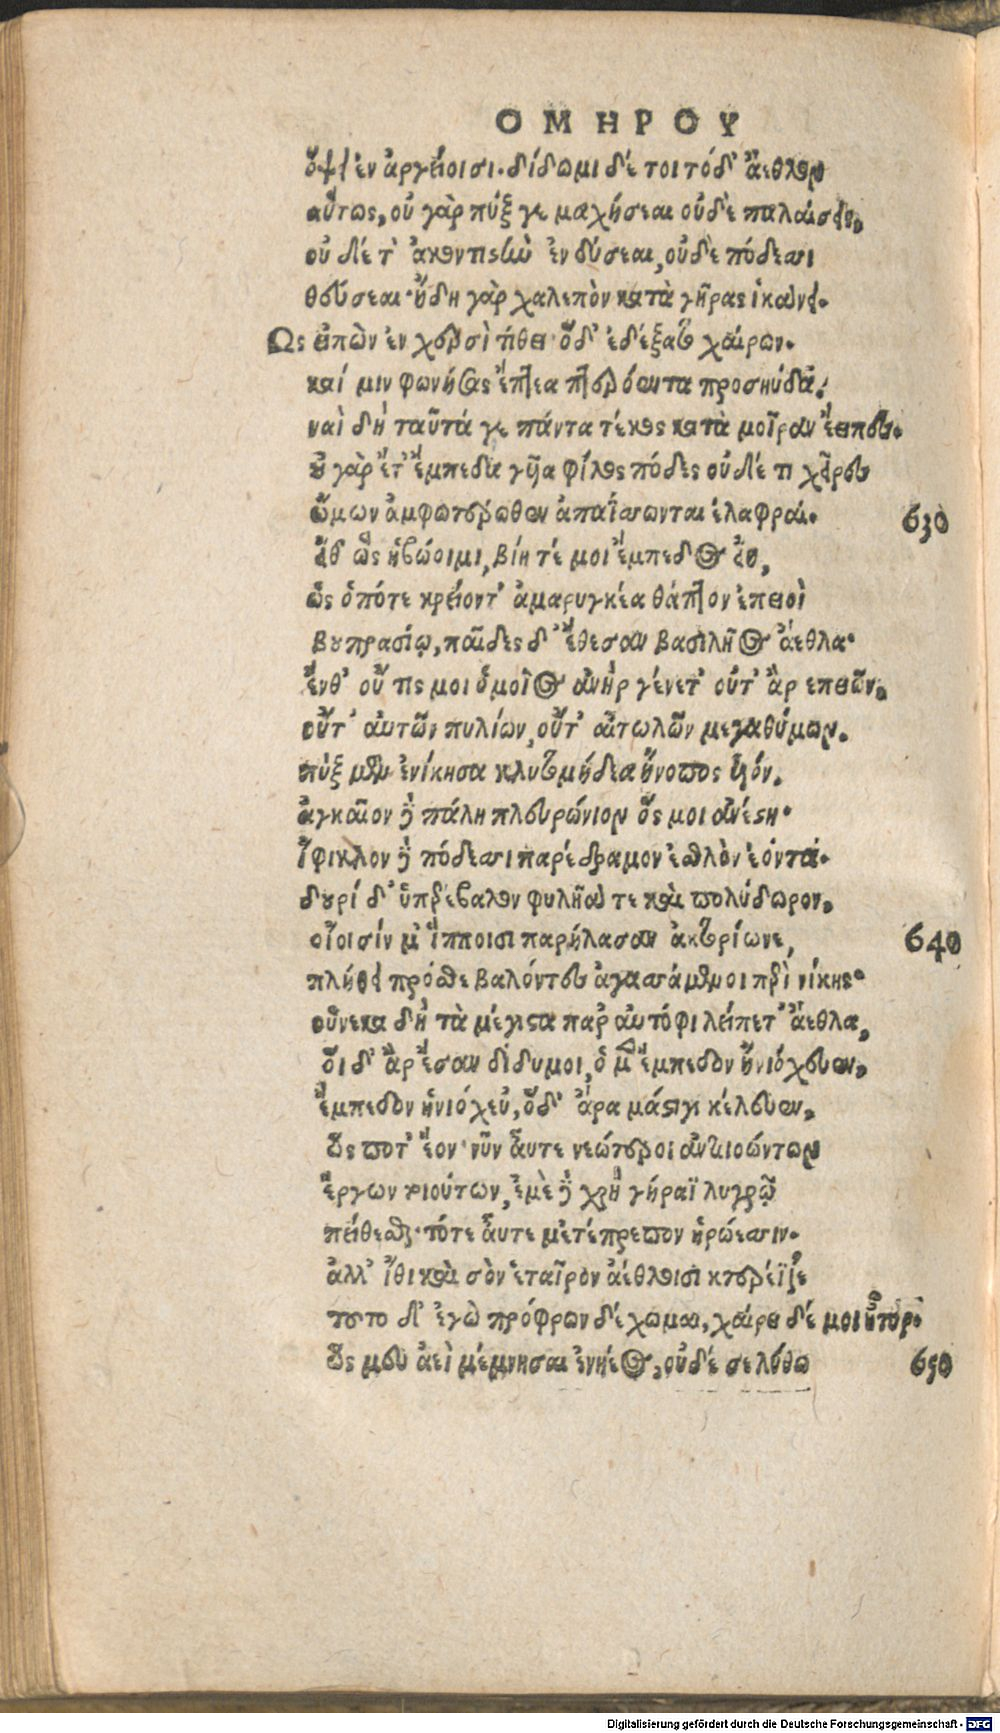 ΟΜΗΡΟΥ
ὄψει ἐν ἀργείοισι. δίδωμι δέ τοι τόδ' ἄεθλον
αὔτως, οὐ γὰρ πύξ γε μαχήσεαι οὐδὲ παλαίσεις,
οὐ δέ τ' ἀκοντιστὺν ἐνδύσεαι, οὐδὲ πόδεσσι
θεύσεαι· ἤδη γὰρ χαλεπὸν κατὰ γῆρας ἱκάνει.
Ὣς εἰπὼν ἐν χερσὶ τίθει· ὅδ' ἐδέξατο χαίρων.
καί μιν φωνήσας ἔπεα πτερόεντα προσηύδα.
ναὶ δὴ ταῦτά γε πάντα τέκος κατὰ μοῖραν ἔειπες.
οὐ γὰρ ἔτ' ἔμπεδα γυῖα φίλος πόδες οὐδέ τι χεῖρες
ὤμων ἀμφοτέρωθεν ἀπαΐσσονται ἐλαφραί.
630
εἴθ' ὣς ἡβώοιμι, βίη τέ μοι ἔμπεδος εἴη,
ὡς ὁπότε κρείοντ' ἀμαρυγκέα θάπτον ἐπειοὶ
βουπρασίῳ, παῖδες δ' ἔθεσαν βασιλῆος ἄεθλα·
ἔνθ' οὔ τις μοι ὁμοῖος ἀνὴρ γένετ' οὔτ' ἂρ ἐπειῶν,
οὔτ' αὐτῶν πυλίων, οὔτ' αἰτωλῶν μεγαθύμων.
πὺξ μὲν ἐνίκησα κλυτομήδεα ἤνοπος υἱόν.
ἀγκαῖον δὲ πάλη πλευρώνιον ὅς μοι ἀνέστη·
ἴφικλον δὲ πόδεσσι παρέδραμον ἐσθλὸν ἐόντα.
δουρί δ' ὑπερέβαλον φυλῆά τε καὶ πολύδωρον.
οἴοισίν μ' ἵπποισι παρήλασαν ἀκτορίωνε,
640
πλήθει πρόσθε βαλόντες ἀγασσάμενοι περὶ νίκης·
οὕνεκα δὴ τὰ μέγιστα παρ' αὐτόφι λείπετ' ἄεθλα,
οἵδ' ἂρ ἔσαν δίδυμοι, ὁ μὲν ἔμπεδον ἡνιόχευεν,
ἔμπεδον ἡνιόχευ, ὅδ' ἄρα μάστιγι κέλευεν,
ὥς ποτ' ἔον· νῦν αὖτε νεώτεροι ἀντιοώντων
ἔργων τοιούτων, ἐμὲ δὲ χρὴ γήραϊ λυγρῷ
πείθεσθαι· τότε αὖτε μετέπρεπον ἡρώεσσιν.
ἀλλ' ἴθι καὶ σὸν ἑταῖρον ἀέθλοισι κτερέϊζε
τοῦτο δ' ἐγὼ πρόφρων δέχομαι, χαίρει δέ μοι ἦτορ.
ὥς μευ ἀεὶ μέμνησαι ἐνηέος, οὐδέ σε λήθω
650
Digitalisierung gefördert durch die Deutsche Forschungsgemeinschaft - DFG